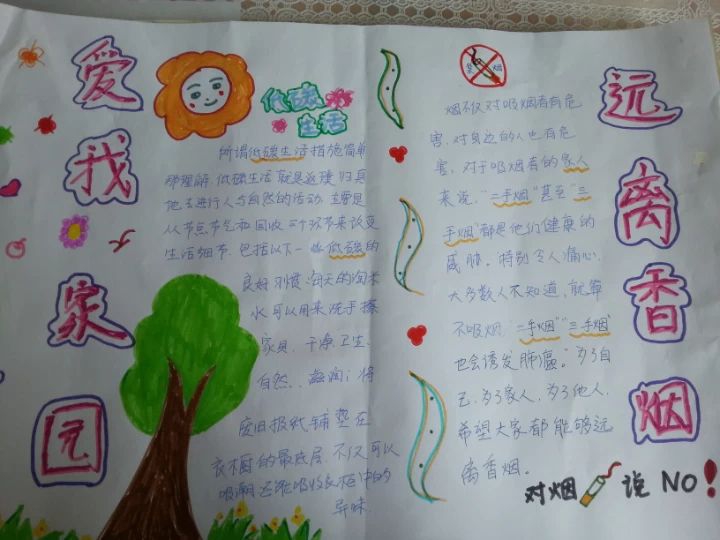 爱我家园
低碳
生活
所谓低碳生活措施简单
那理解,低碳生活就是返璞归真
他去进行人与自然的活动,主要是
从节点节气和回收三个环节来改变
生活细节,包括以下一些低碳的
良好习惯:淘天的淘米
水可以用来洗手擦
家具,干净卫生,
自然,滋润;将
废旧报纸铺垫在
衣橱的最底层,不仅可以
吸潮还能吸收衣柜中的
异味.
禁烟
烟不仅对吸烟者有危
害,对身边的人也有危
害,对于吸烟者的家人
来说,"二手烟"甚至"三
手烟"都是他们健康的
威胁。特别令人痛心,
大多数人不知道,就算
不吸烟,"二手烟""三手烟"
也会诱发肺癌。"为了自
己,为了家人,为了他人,
希望大家都能够远
离香烟。
远离香烟
对烟说NO!